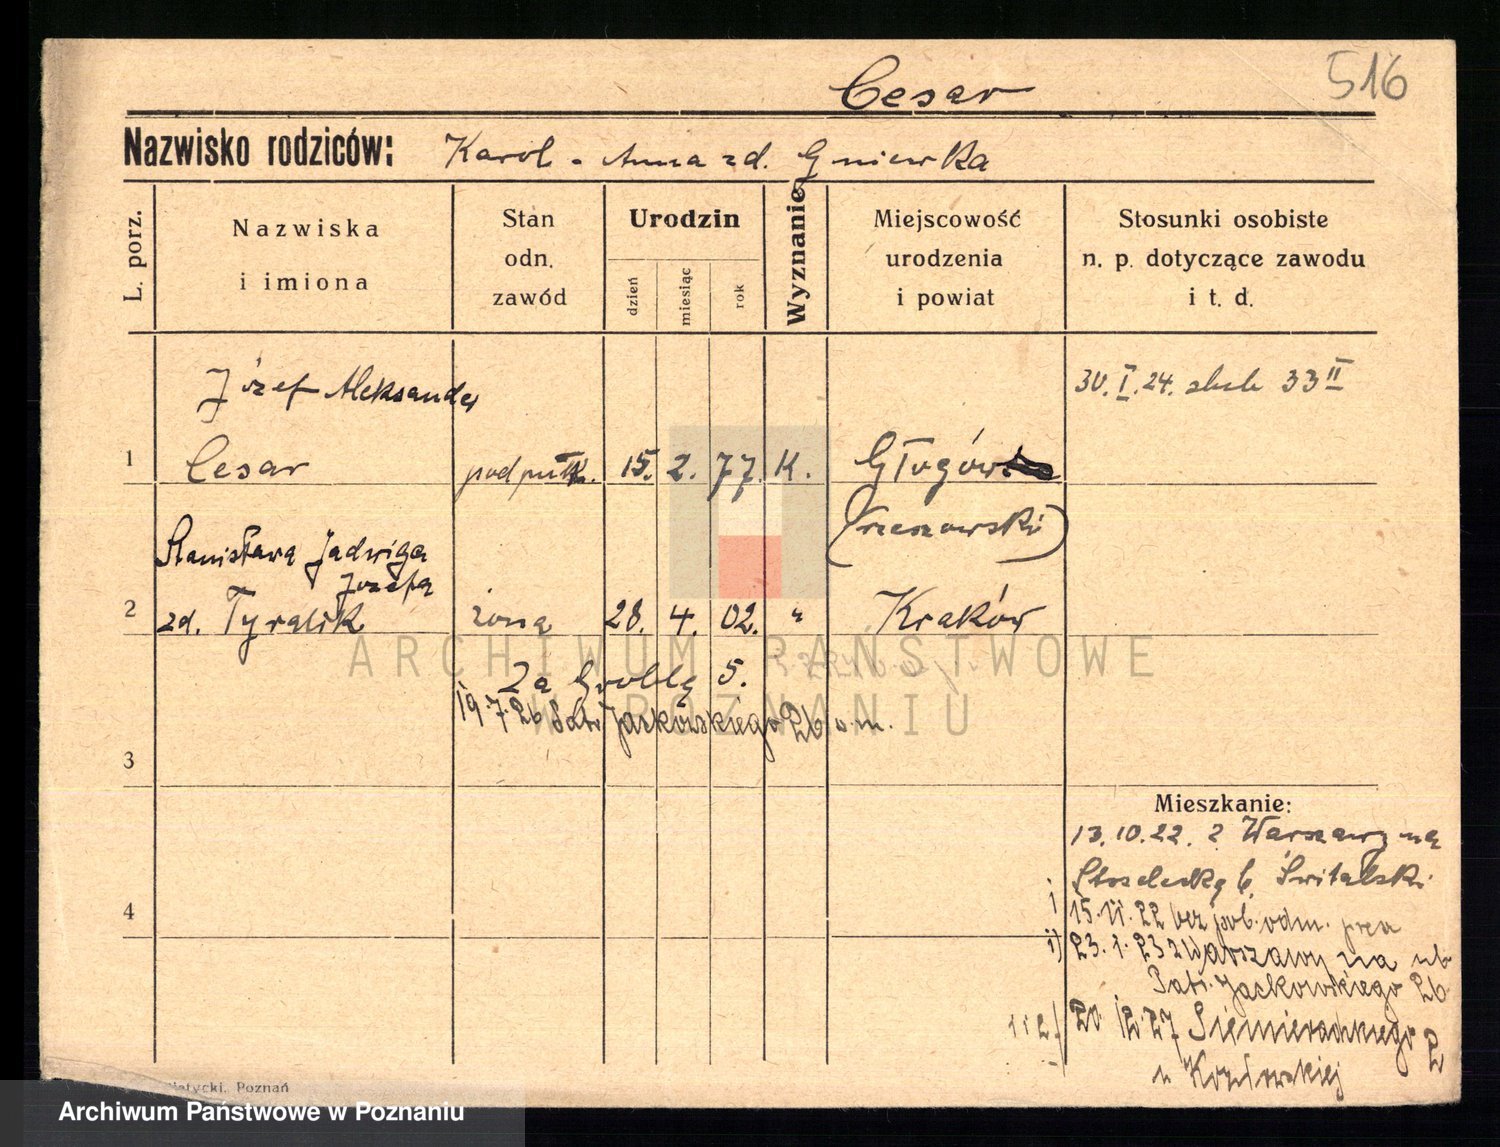 516
Cesar
Nazwisko rodziców: Karol - Anna zd. Gniewka
L. porz.
Nazwiska i imiona
Stan odn. zawód
Urodzin
dzień
miesiąc
rok
Wyznanie
Miejscowość urodzenia i powiat
Stosunki osobiste n. p. dotyczące zawodu i t. d.
Józef Aleksander
30. I. 24. 33 II
1 Cesar podpułk. 15. 2. 77. K. Głogów
(rzeszowski)
Stanisława Jadwiga
Józefa
2 zd. Tyralik żona 28. 4. 02. " Kraków
Za Groblą 5.
19.7.26 Patr. Jackowskiego 26 n.m.
3
Mieszkanie:
13.10.22. z Warszawy na
6. Świtalski
4
15.11.22 bez pol. odm.
23.1.23 z Warszawy na
Patr. Jackowskiego 26
20 12.27 Siemiradzkiego 2
u Kozłowskiej
Poznań
ARCHIWUM PAŃSTWOWE
W POZNANIU
Archiwum Państwowe w Poznaniu